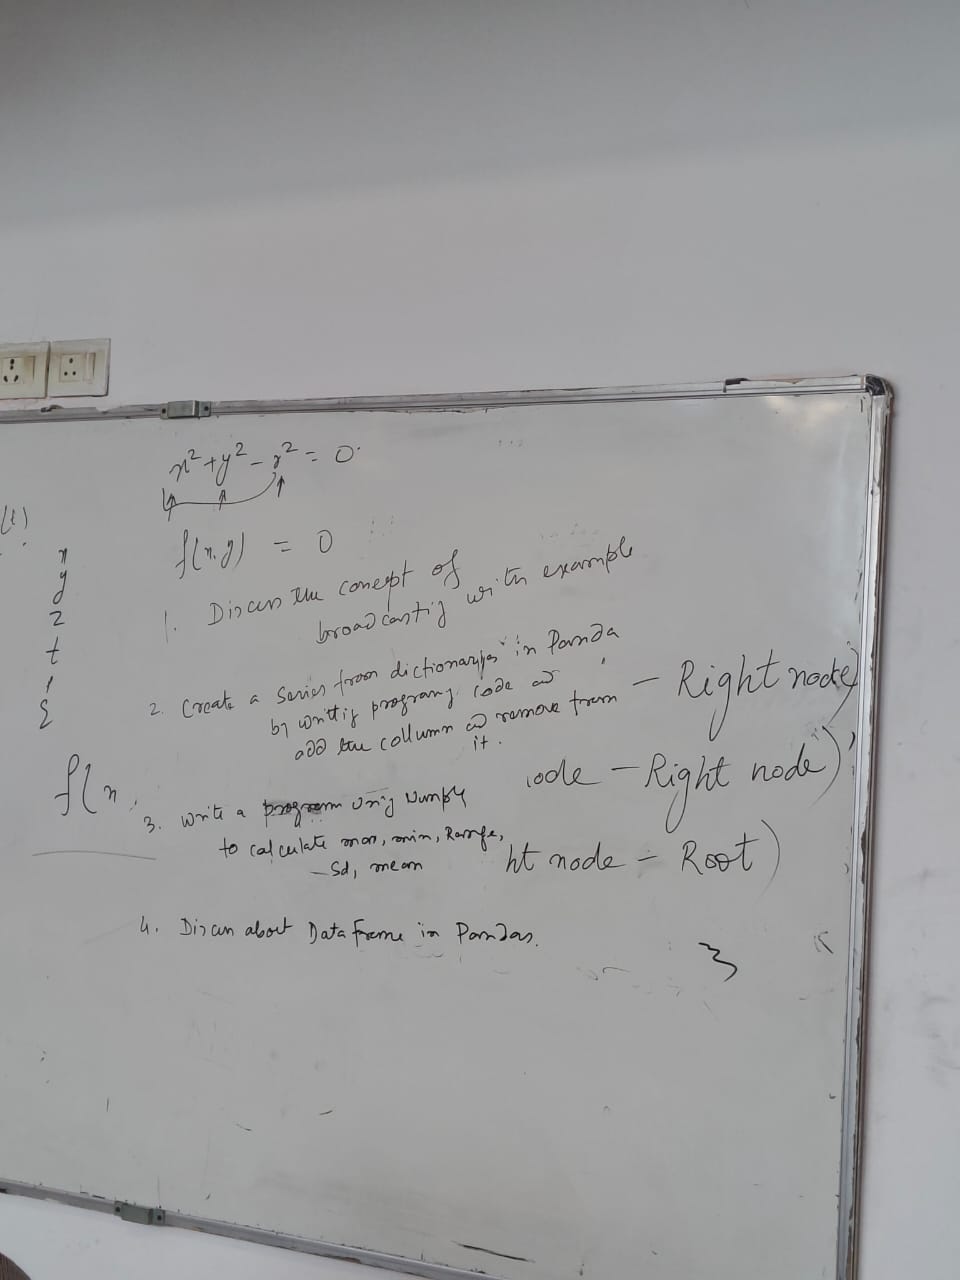 x² + y² - r² = 0
f(x, y) = 0
(t)
x
y
z
t
f(x
1. Discuss the concept of
broadcastig with example
2. Create a Series from dictionaries in Panda
by writtig programg code and
add the collumn and remove from
it.
3. Write a program Using Numpy
to calculate max, min, Range,
- Sd, mean
4. Discuss about Data Frame in Pandas.
- Right node)
ode - Right node)
ht node - Root)
}